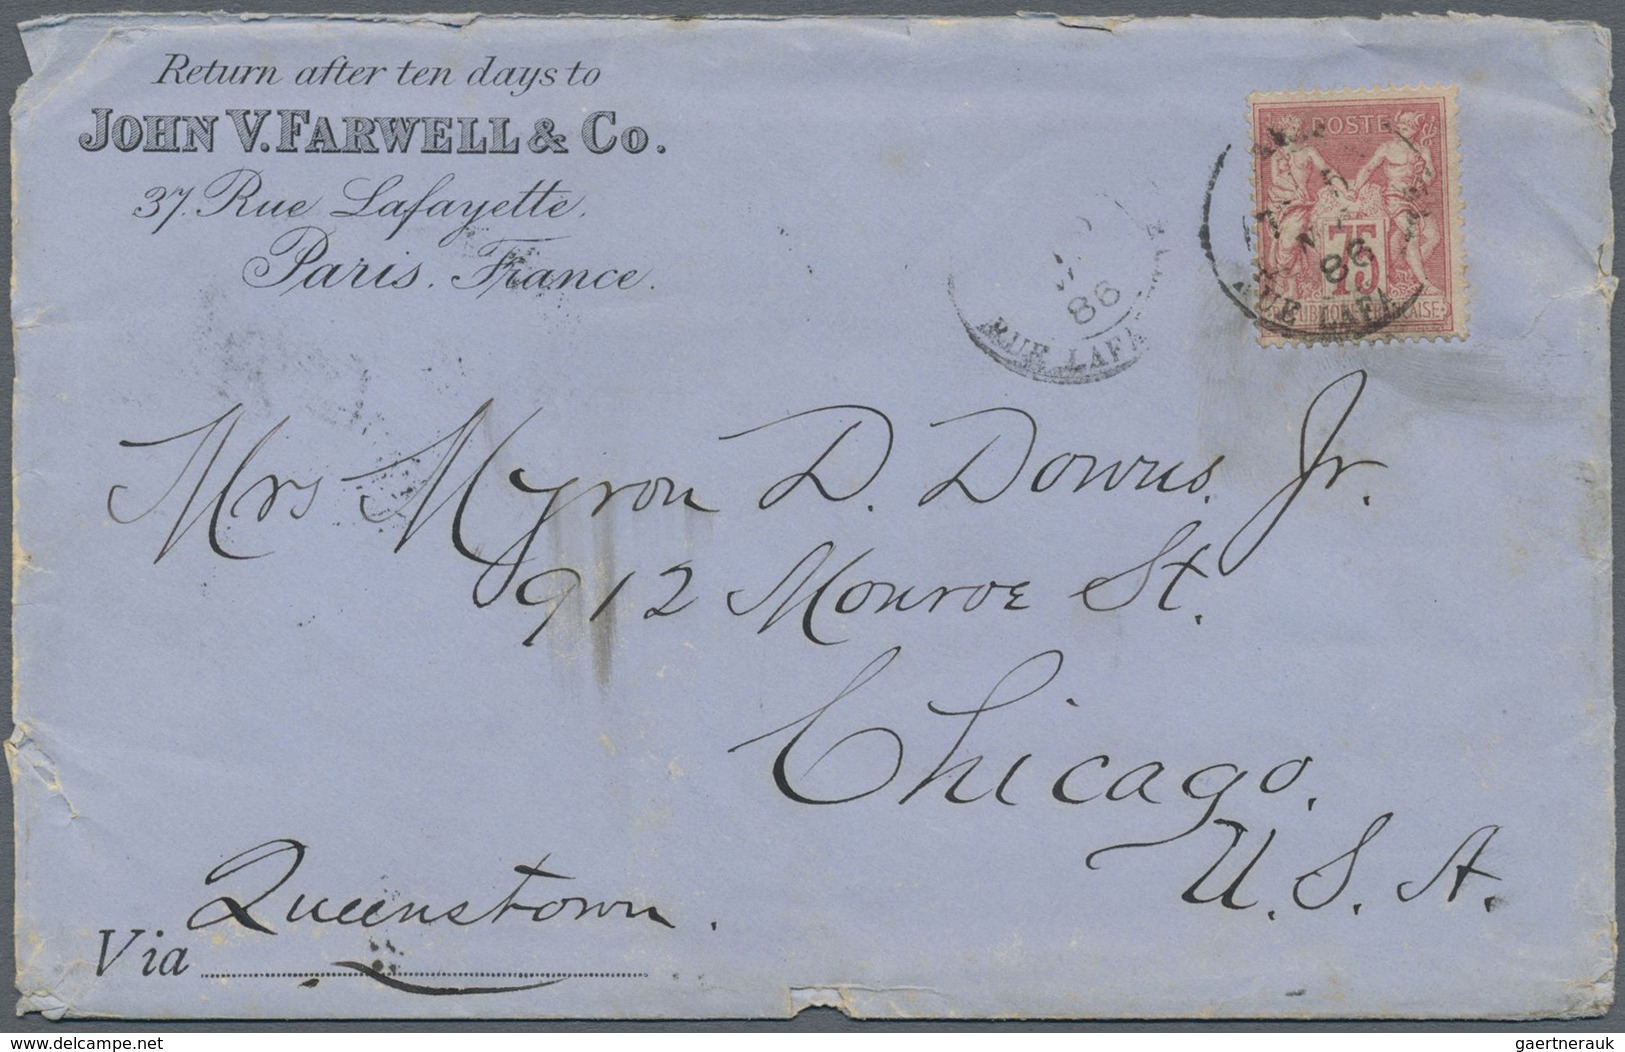 Return after ten days to
JOHN V. FARWELL & Co.
37. Rue Lafayette.
Paris. France.
POSTE
75
86
RUE LAFA
86
RUE LAFA
Mrs Myron D. Downs. Jr.
912 Monroe St.
Chicago.
U.S.A.
Via Queenstown.
www.delcampe.net
gaertnerauk